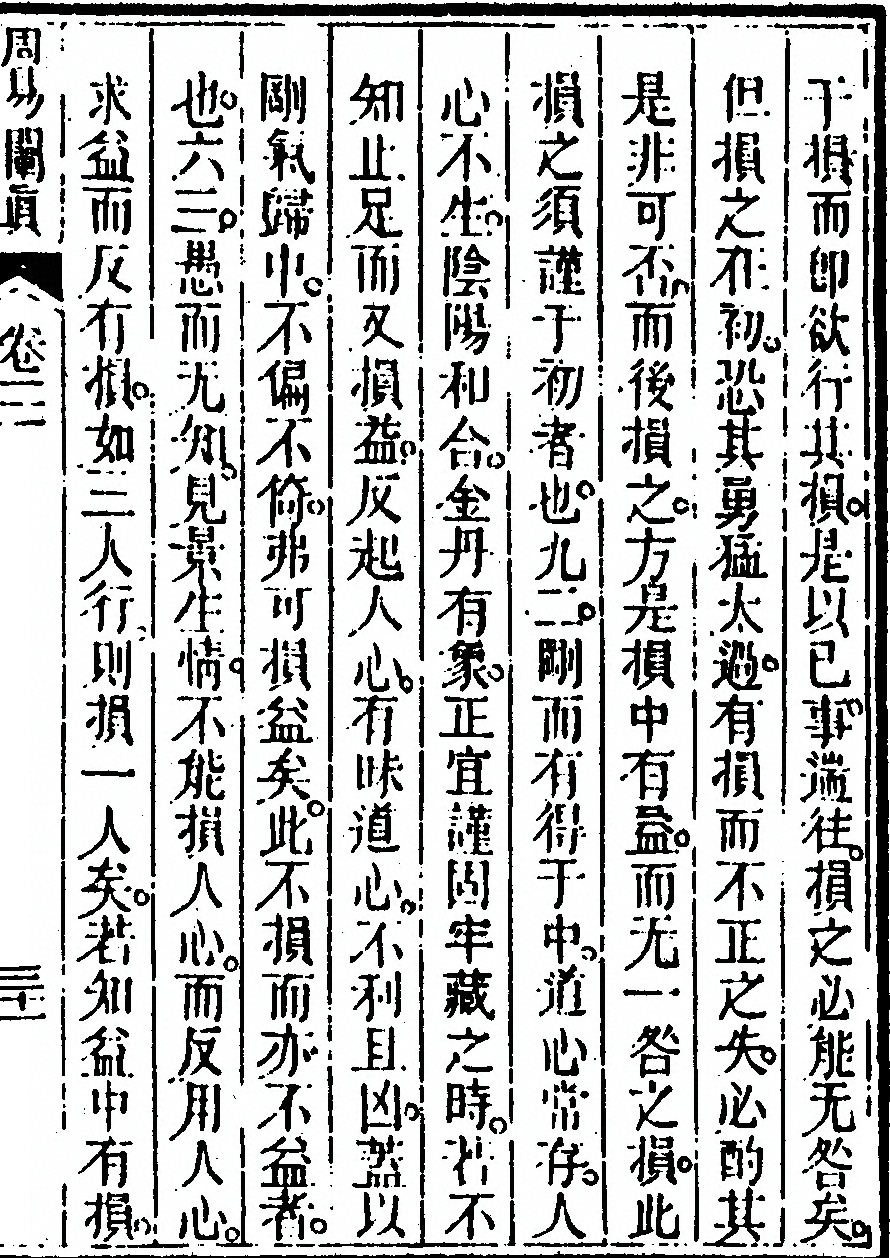 于損而即欲行其損是以已事遄往損之必能无咎矣
但損之在初恐其勇猛太過有損而不正之失必酌其
是非可否而後損之方是損中有益而无一咎之損此
損之須謹于初者也九二剛而有得于中道心常存人
心不生陰陽和合金丹有象正宜謹固牢藏之時若不
知止足而又損益反起人心有昧道心不利且凶蓋以
剛氣歸中不偏不倚弗可損益矣此不損而亦不益者
也六三愚而无知見景生情不能損人心而反用人心
求益而反有損如三人行則損一人矣若知益中有損
周易闡真 卷二 三十二